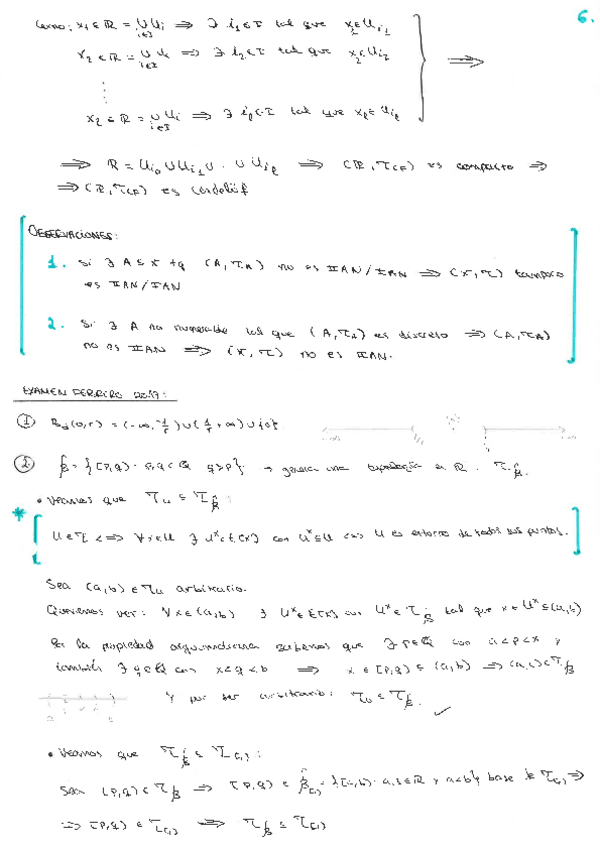 6.
Como: x₁ ∈ ℝ = ∪ Uᵢ ⟹ ∃ i₁ ∈ I tal que x₁ ∈ U_{i₁}
i∈I
x₂ ∈ ℝ = ∪ Uᵢ ⟹ ∃ i₂ ∈ I tal que x₂ ∈ U_{i₂} ⟹
i∈I
⋮
x_ℓ ∈ ℝ = ∪ Uᵢ ⟹ ∃ i_ℓ ∈ I tal que x_ℓ ∈ U_{i_ℓ}
i∈I
⟹ ℝ = U_{i₀} ∪ U_{i₁} ∪ ·· ∪ U_{i_ℓ} ⟹ (ℝ, τ_{CF}) es compacto ⟹
⟹ (ℝ, τ_{CF}) es Lindelöf
OBSERVACIONES:
1. Si ∃ A ⊆ X tq (A, τ_A) no es IIAN/IAN ⟹ (X, τ) tampoco
es IIAN/IAN
2. Si ∃ A no numerable tal que (A, τ_A) es discreto ⟹ (A, τ_A)
no es IIAN ⟹ (X, τ) no es IIAN.
EXAMEN FEBRERO 2017:
① B_d(0,r) = (-∞, -1/r) ∪ (1/r, +∞) ∪ {0}
② β = {[p,q) : p,q ∈ ℚ q>p} → genera una topología en ℝ. τ_β.
• Veamos que τ_u ⊆ τ_β:
* [ U ∈ τ ⟺ ∀x∈U ∃ Uˣ ∈ ξ(x) con Uˣ ⊆ U ⟺ U es entorno de todos sus puntos. ]
Sea (a,b) ∈ τ_u arbitrario.
Queremos ver: ∀x ∈ (a,b) ∃ Uˣ ∈ ξ(x) con Uˣ ∈ τ_β tal que x ∈ Uˣ ⊆ (a,b)
Por la propiedad arquimediana sabemos que ∃ p ∈ ℚ con a<p<x y
también ∃ q ∈ ℚ con x<q<b ⟹ x ∈ [p,q) ⊆ (a,b) ⟹ (a,b) ∈ τ_β
Y por ser arbitrario: τ_u ⊆ τ_β. ✓
• Veamos que τ_β ⊆ τ_{[,)}:
Sea [p,q) ∈ τ_β ⟹ [p,q) ∈ β_{[,)} = {[a,b) : a,b ∈ ℝ y a<b} base de τ_{[,)} ⟹
⟹ [p,q) ∈ τ_{[,)} ⟹ τ_β ⊆ τ_{[,)}